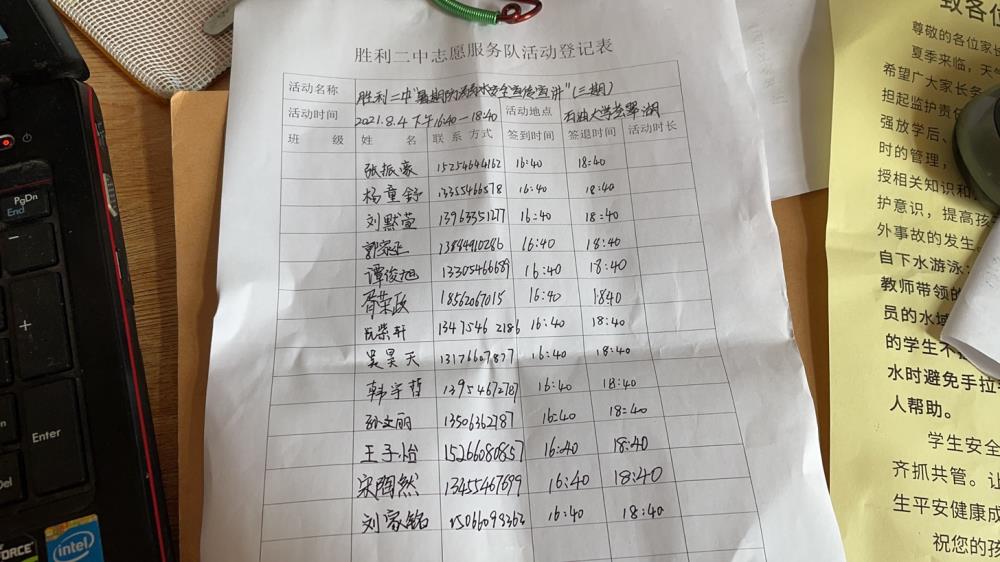 胜利二中志愿服务队活动登记表
活动名称 胜利二中"暑期防溺水安全宣传宣讲"(三期)
活动时间 2021.8.4 下午16:40—18:40 活动地点 石油大学荟萃湖
班 级 姓 名 联系方式 签到时间 签退时间 活动时长
张振豪 15254644162 16:40 18:40
杨童舒 13355466578 16:40 18:40
刘默萱 13963351277 16:40 18:40
13884910286 16:40 18:40
谭俊旭 13305466689 16:40 18:40
胥荣政 18562067015 16:40 1840
1347546 2186 16:40 18:40
吴昊天 13176607877 16:40 18:40
韩宇哲 13954672787 16:40 18:40
孙文丽 13506362787 16:40 18:40
王子怡 15266080857 16:40 18:40
宋陶然 13455467699 16:40 18:40
刘家铭 15066098363 16:40 18:40
致各位
尊敬的各位家长
夏季来临,天
希望广大家长务
担起监护责任
强放学后、
时的管理,
授相关知识和
护意识,提高孩
外事故的发生
自下水游泳;
教师带领的
员的水域
的学生不
水时避免手拉手
人帮助。
学生安全
齐抓共管。让
生平安健康成
祝您的孩
PgDn
End
+
Enter
Del
FORCE
intel